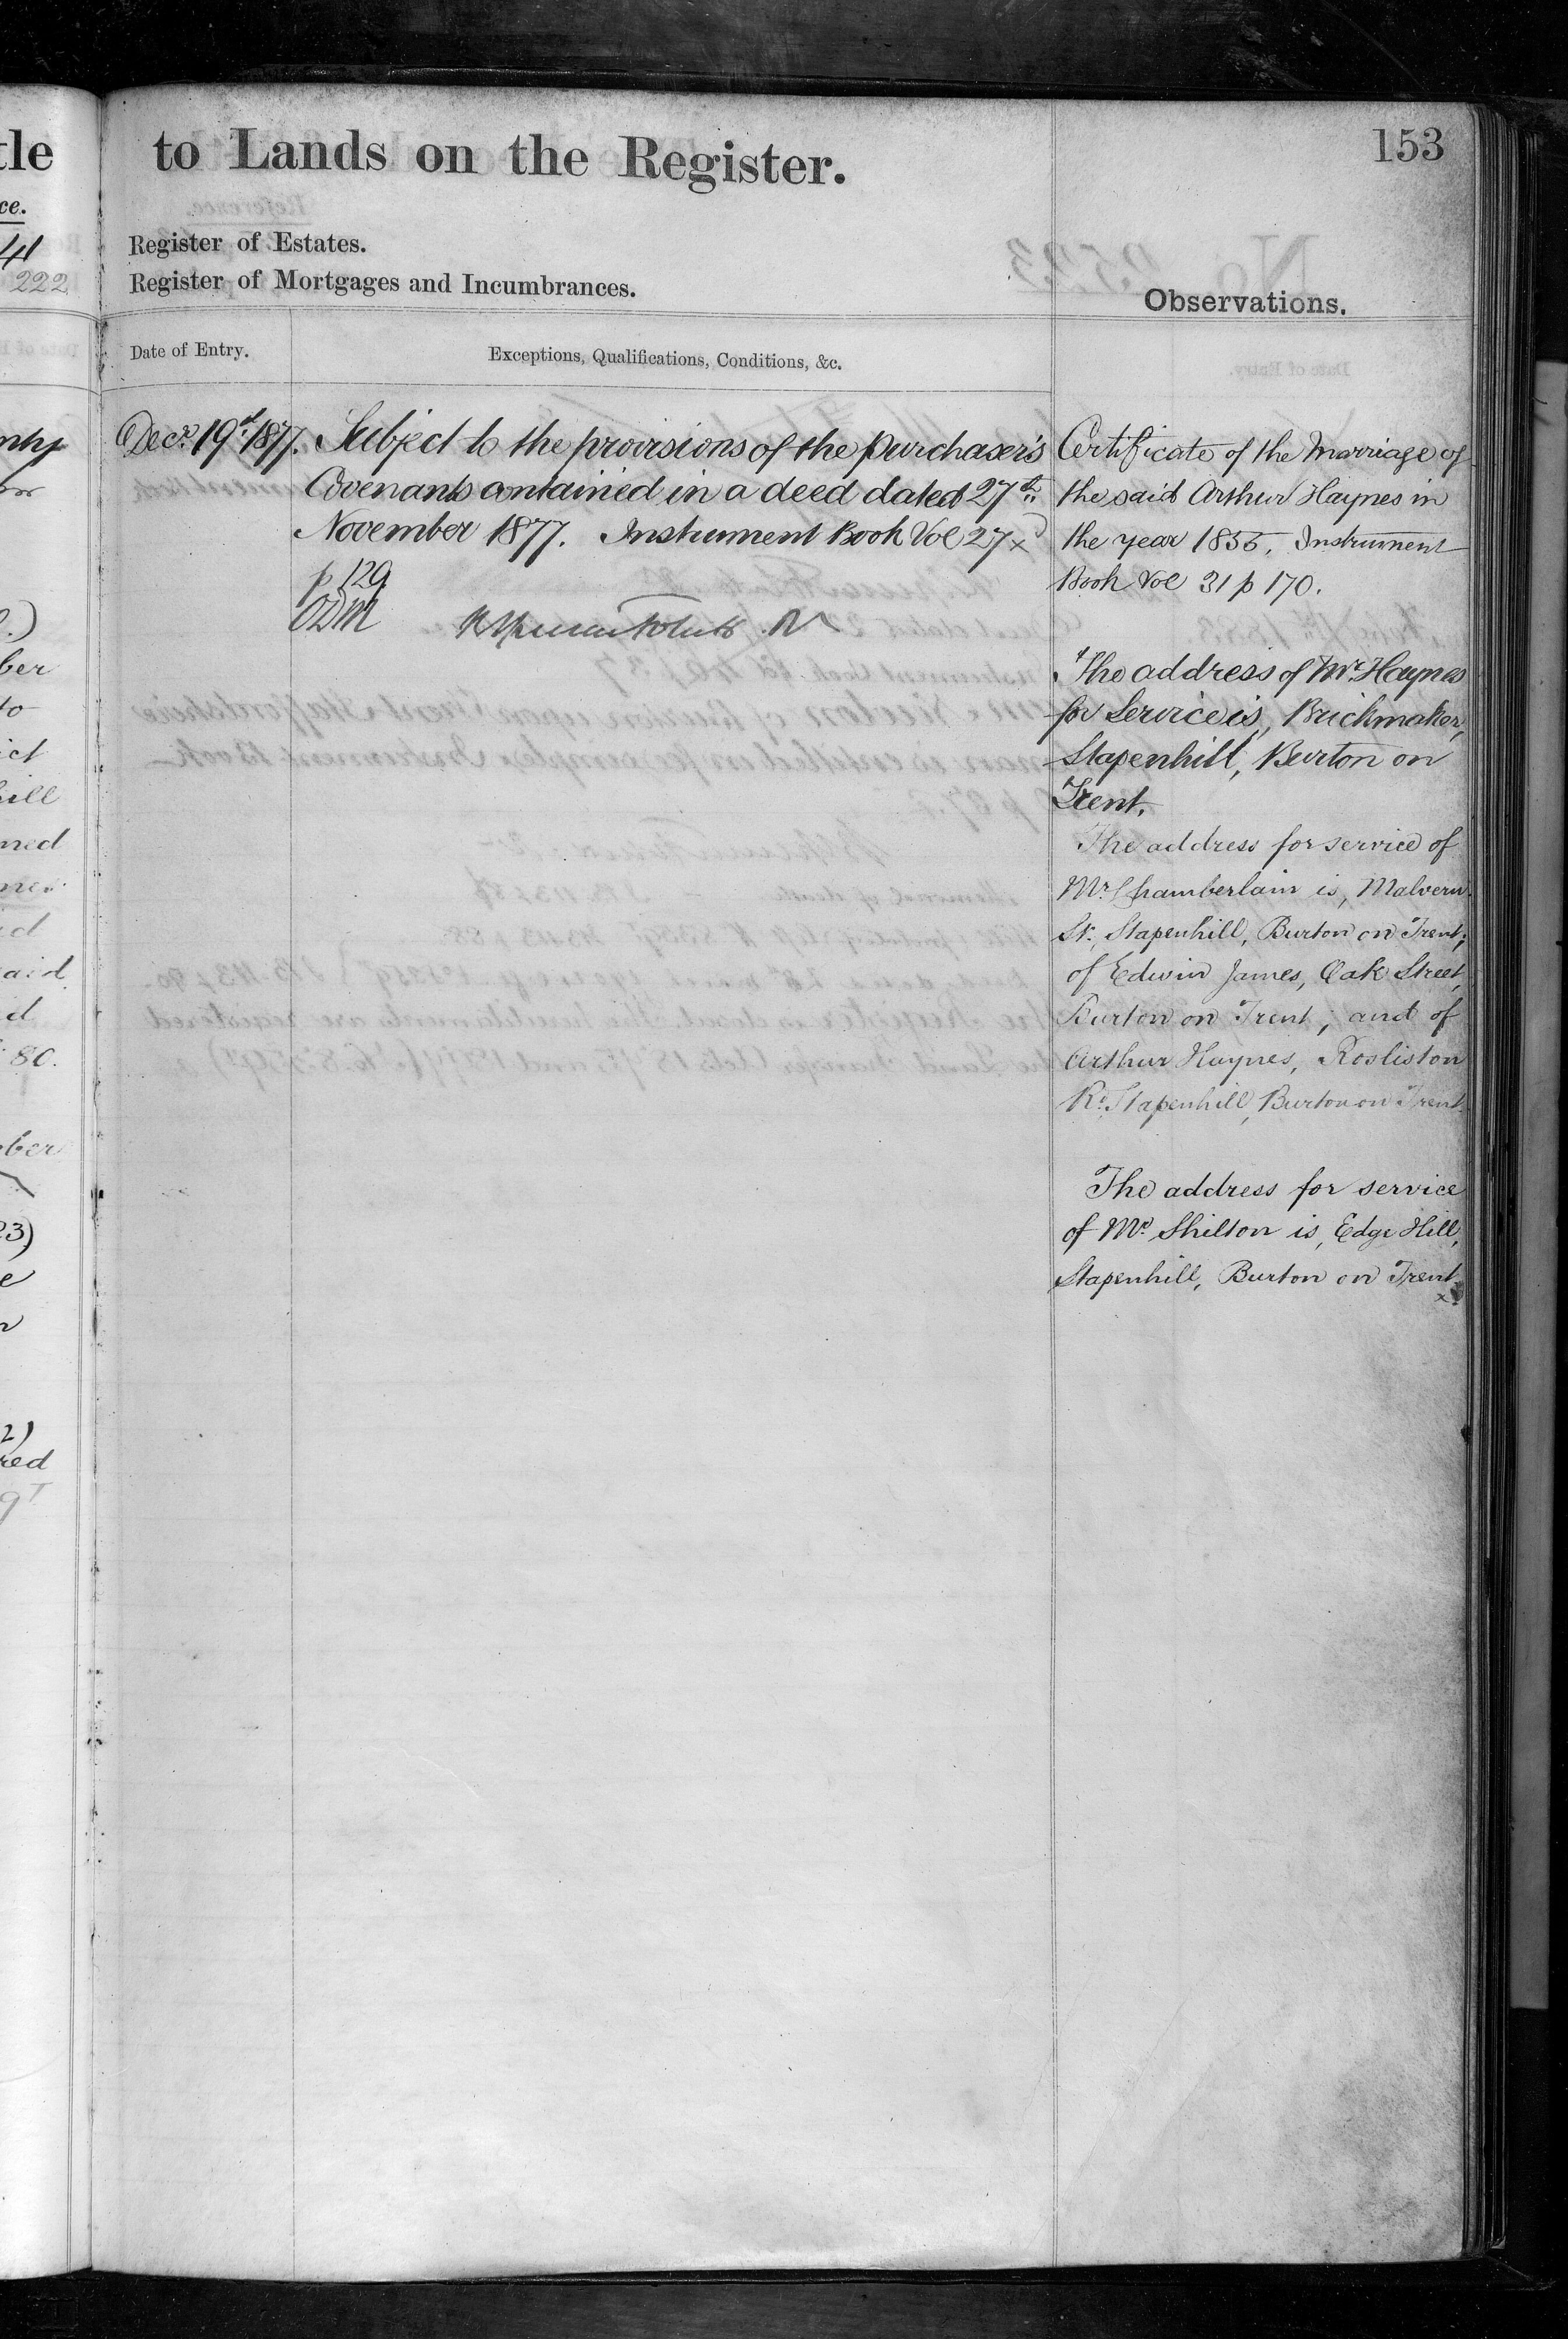 tle
ce.
41
222
to Lands on the Register.
153
Register of Estates.
Register of Mortgages and Incumbrances.
Observations.
Date of Entry.
Exceptions, Qualifications, Conditions, &c.
Decr. 19th 1877.
Subject to the provisions of the purchaser's
Covenants contained in a deed dated 27th
November 1877. Instrument Book Vol 27
p 129
Certificate of the Marriage of
the said Arthur Haynes in
the year 1855, Instrument
Book Vol 31 p 170.
The address of Mr. Haynes
for Service is, Brickmaker,
Stapenhill, Burton on
Trent.
The address for service of
Mr. Chamberlain is, Malvern
St., Stapenhill, Burton on Trent;
of Edwin James, Oak Street,
Burton on Trent; and of
Arthur Haynes, Rosliston
Rd. Stapenhill, Burton on Trent.
The address for service
of Mr. Shilton is, Edge Hill,
Stapenhill, Burton on Trent.
ber
to
ict
hill
med
aid
d
80.
ber
23)
e
2)
red